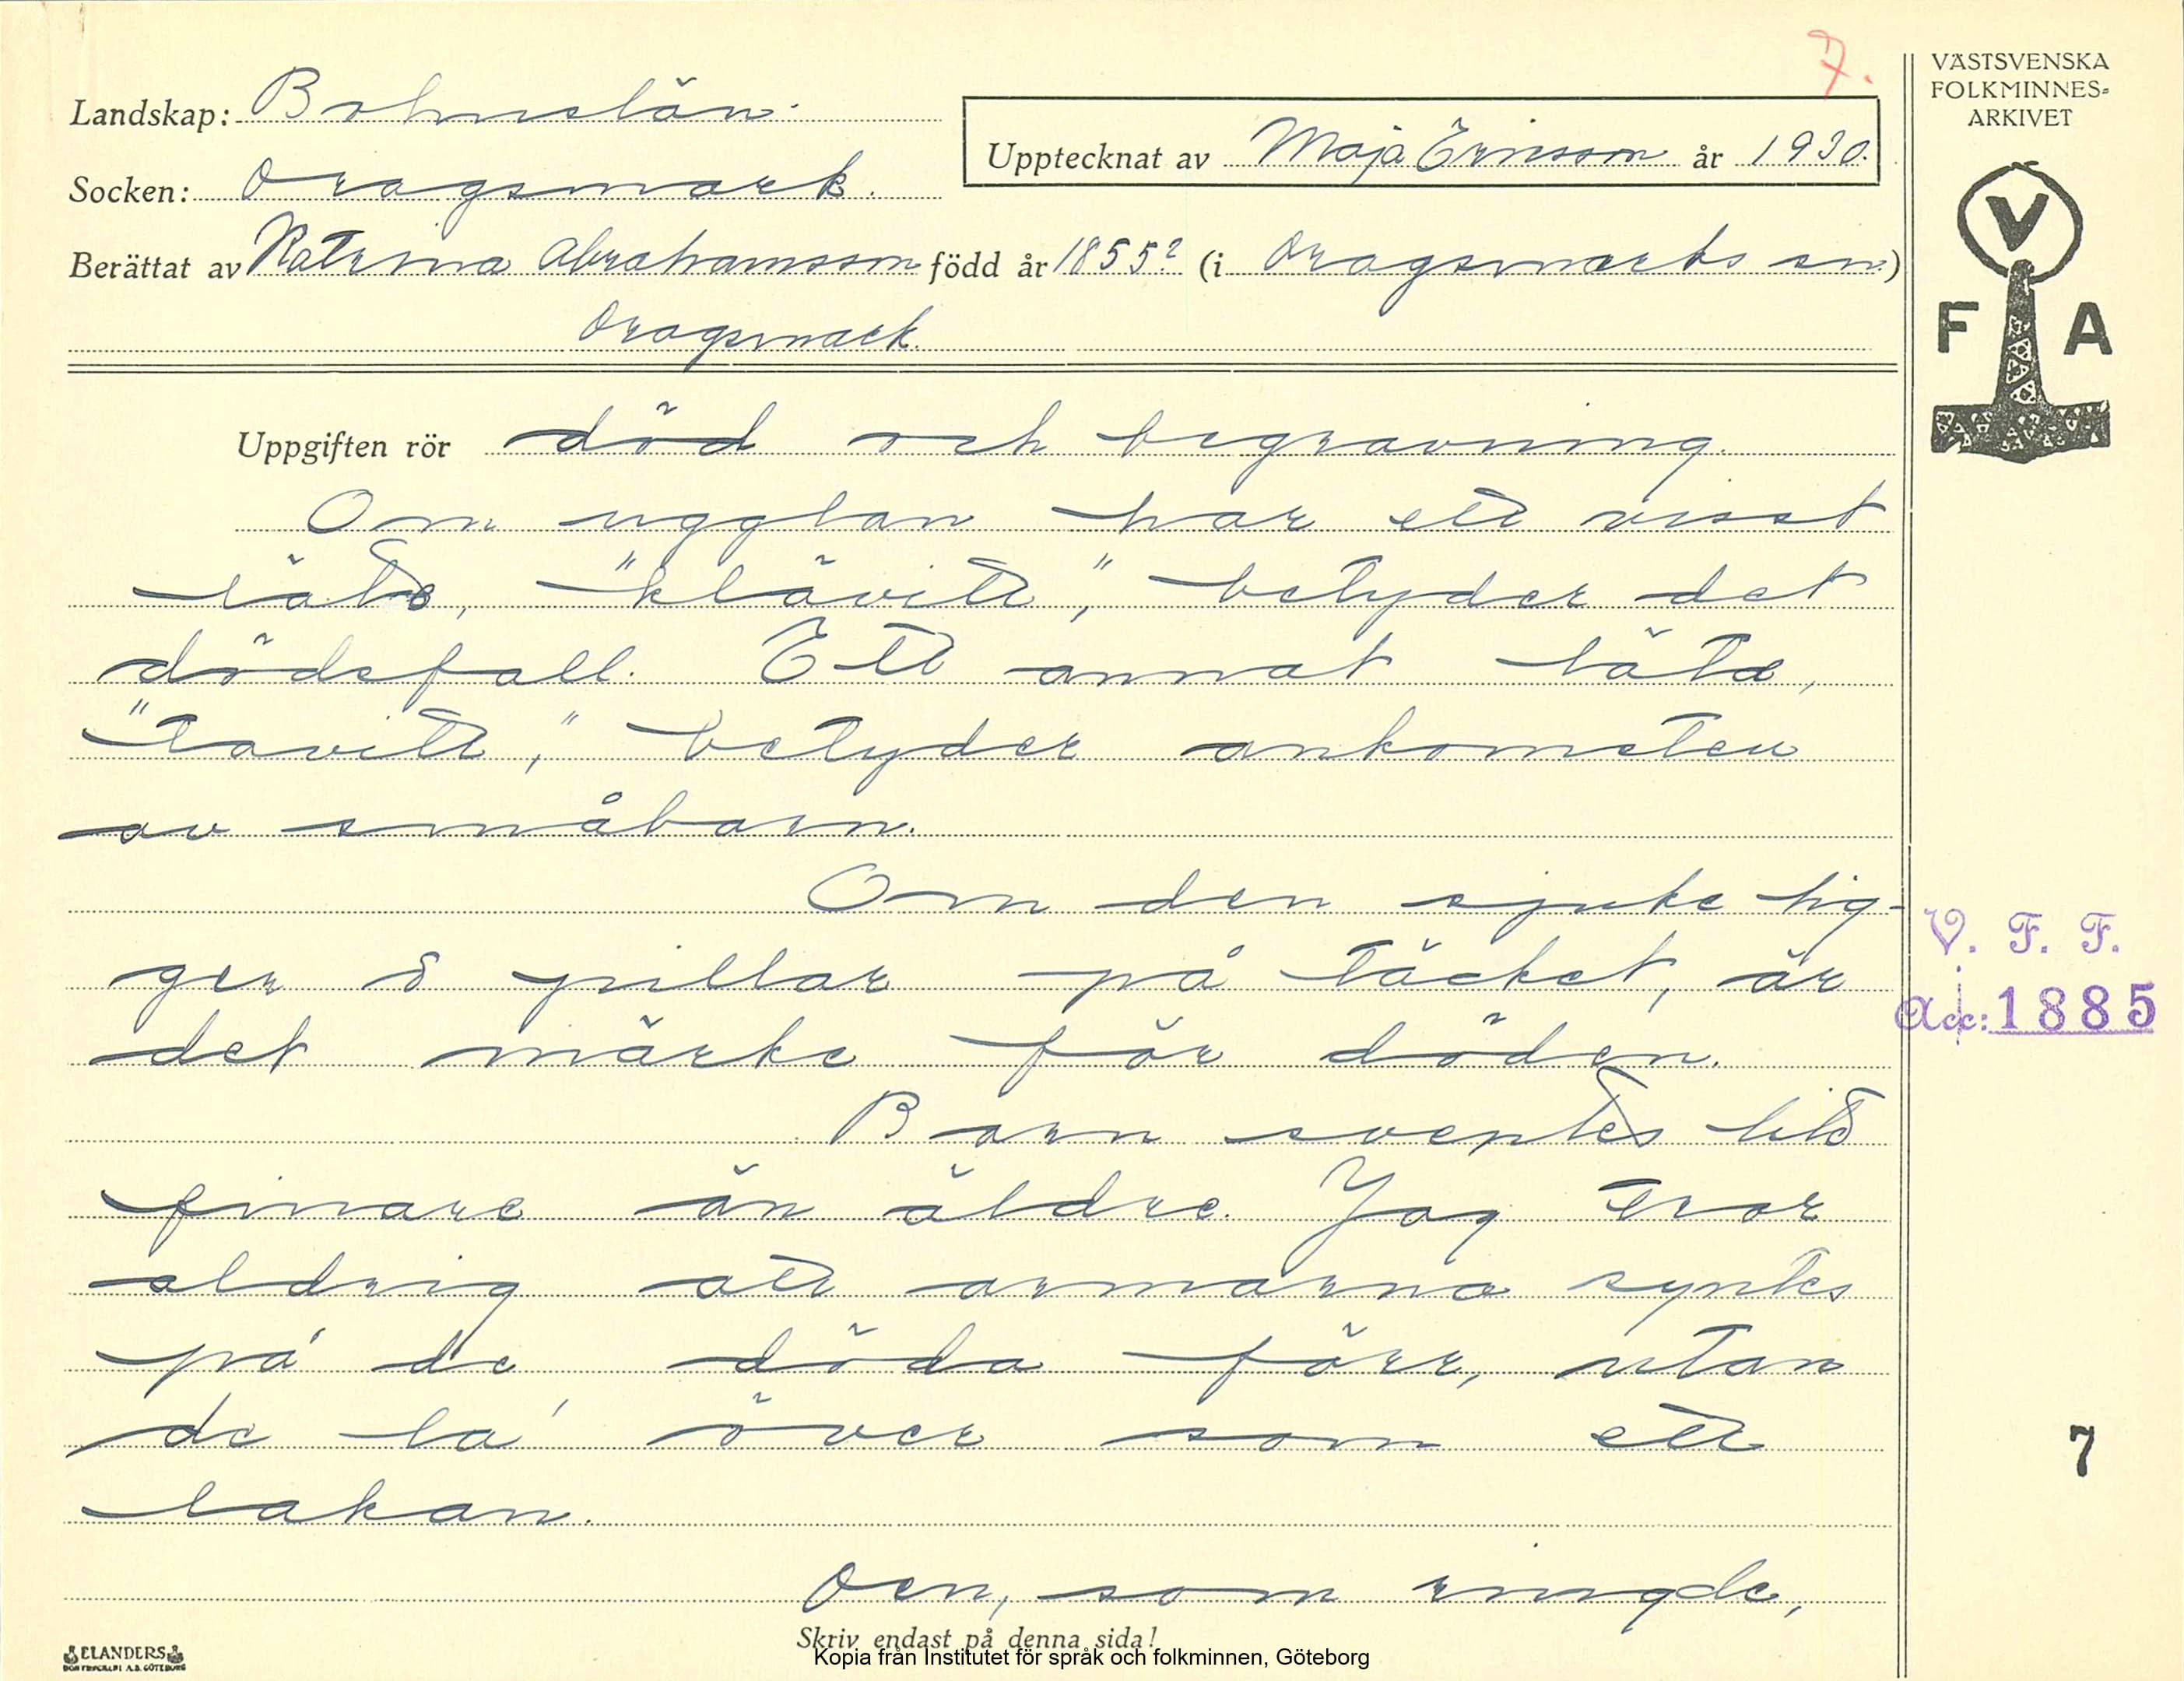 7.
VÄSTSVENSKA
FOLKMINNES-
ARKIVET
Landskap: Bohuslän.
Upptecknat av Maja Ericson år 1930.
Socken: Dragsmark.
Berättat av Katrina Abrahamsson född år 1855? (i Dragsmarks sn.)
Dragsmark.
V
F A
Uppgiften rör död och begravning.
Om ugglan har ett visst
läte, "klävitt," betyder det
dödsfall. Ett annat läte,
"tavitt," betyder ankomsten
av småbarn.
Om den sjuke lig-
ger o pillar på täcket, är
det märke för döden.
V. F. F.
Acc: 1885
Barn sveptes lite
finare än äldre. Jag tror
aldrig att armarna syntes
på de döda förr, utan
de la' över som ett
lakan.
7
Den, som ringde,
Skriv endast på denna sida!
ELANDERS
Kopia från Institutet för språk och folkminnen, Göteborg